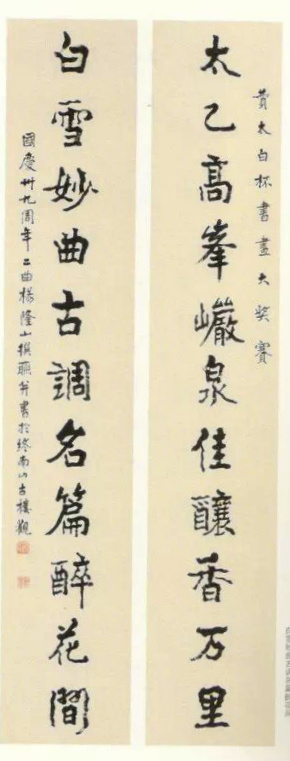 賀太白杯書畫大奖賽
太乙高峯巖泉佳釀香万里
白雪妙曲古調名篇醉花間
國慶卅九周年二曲楊隆山撰聯并書於終南山古樓觀